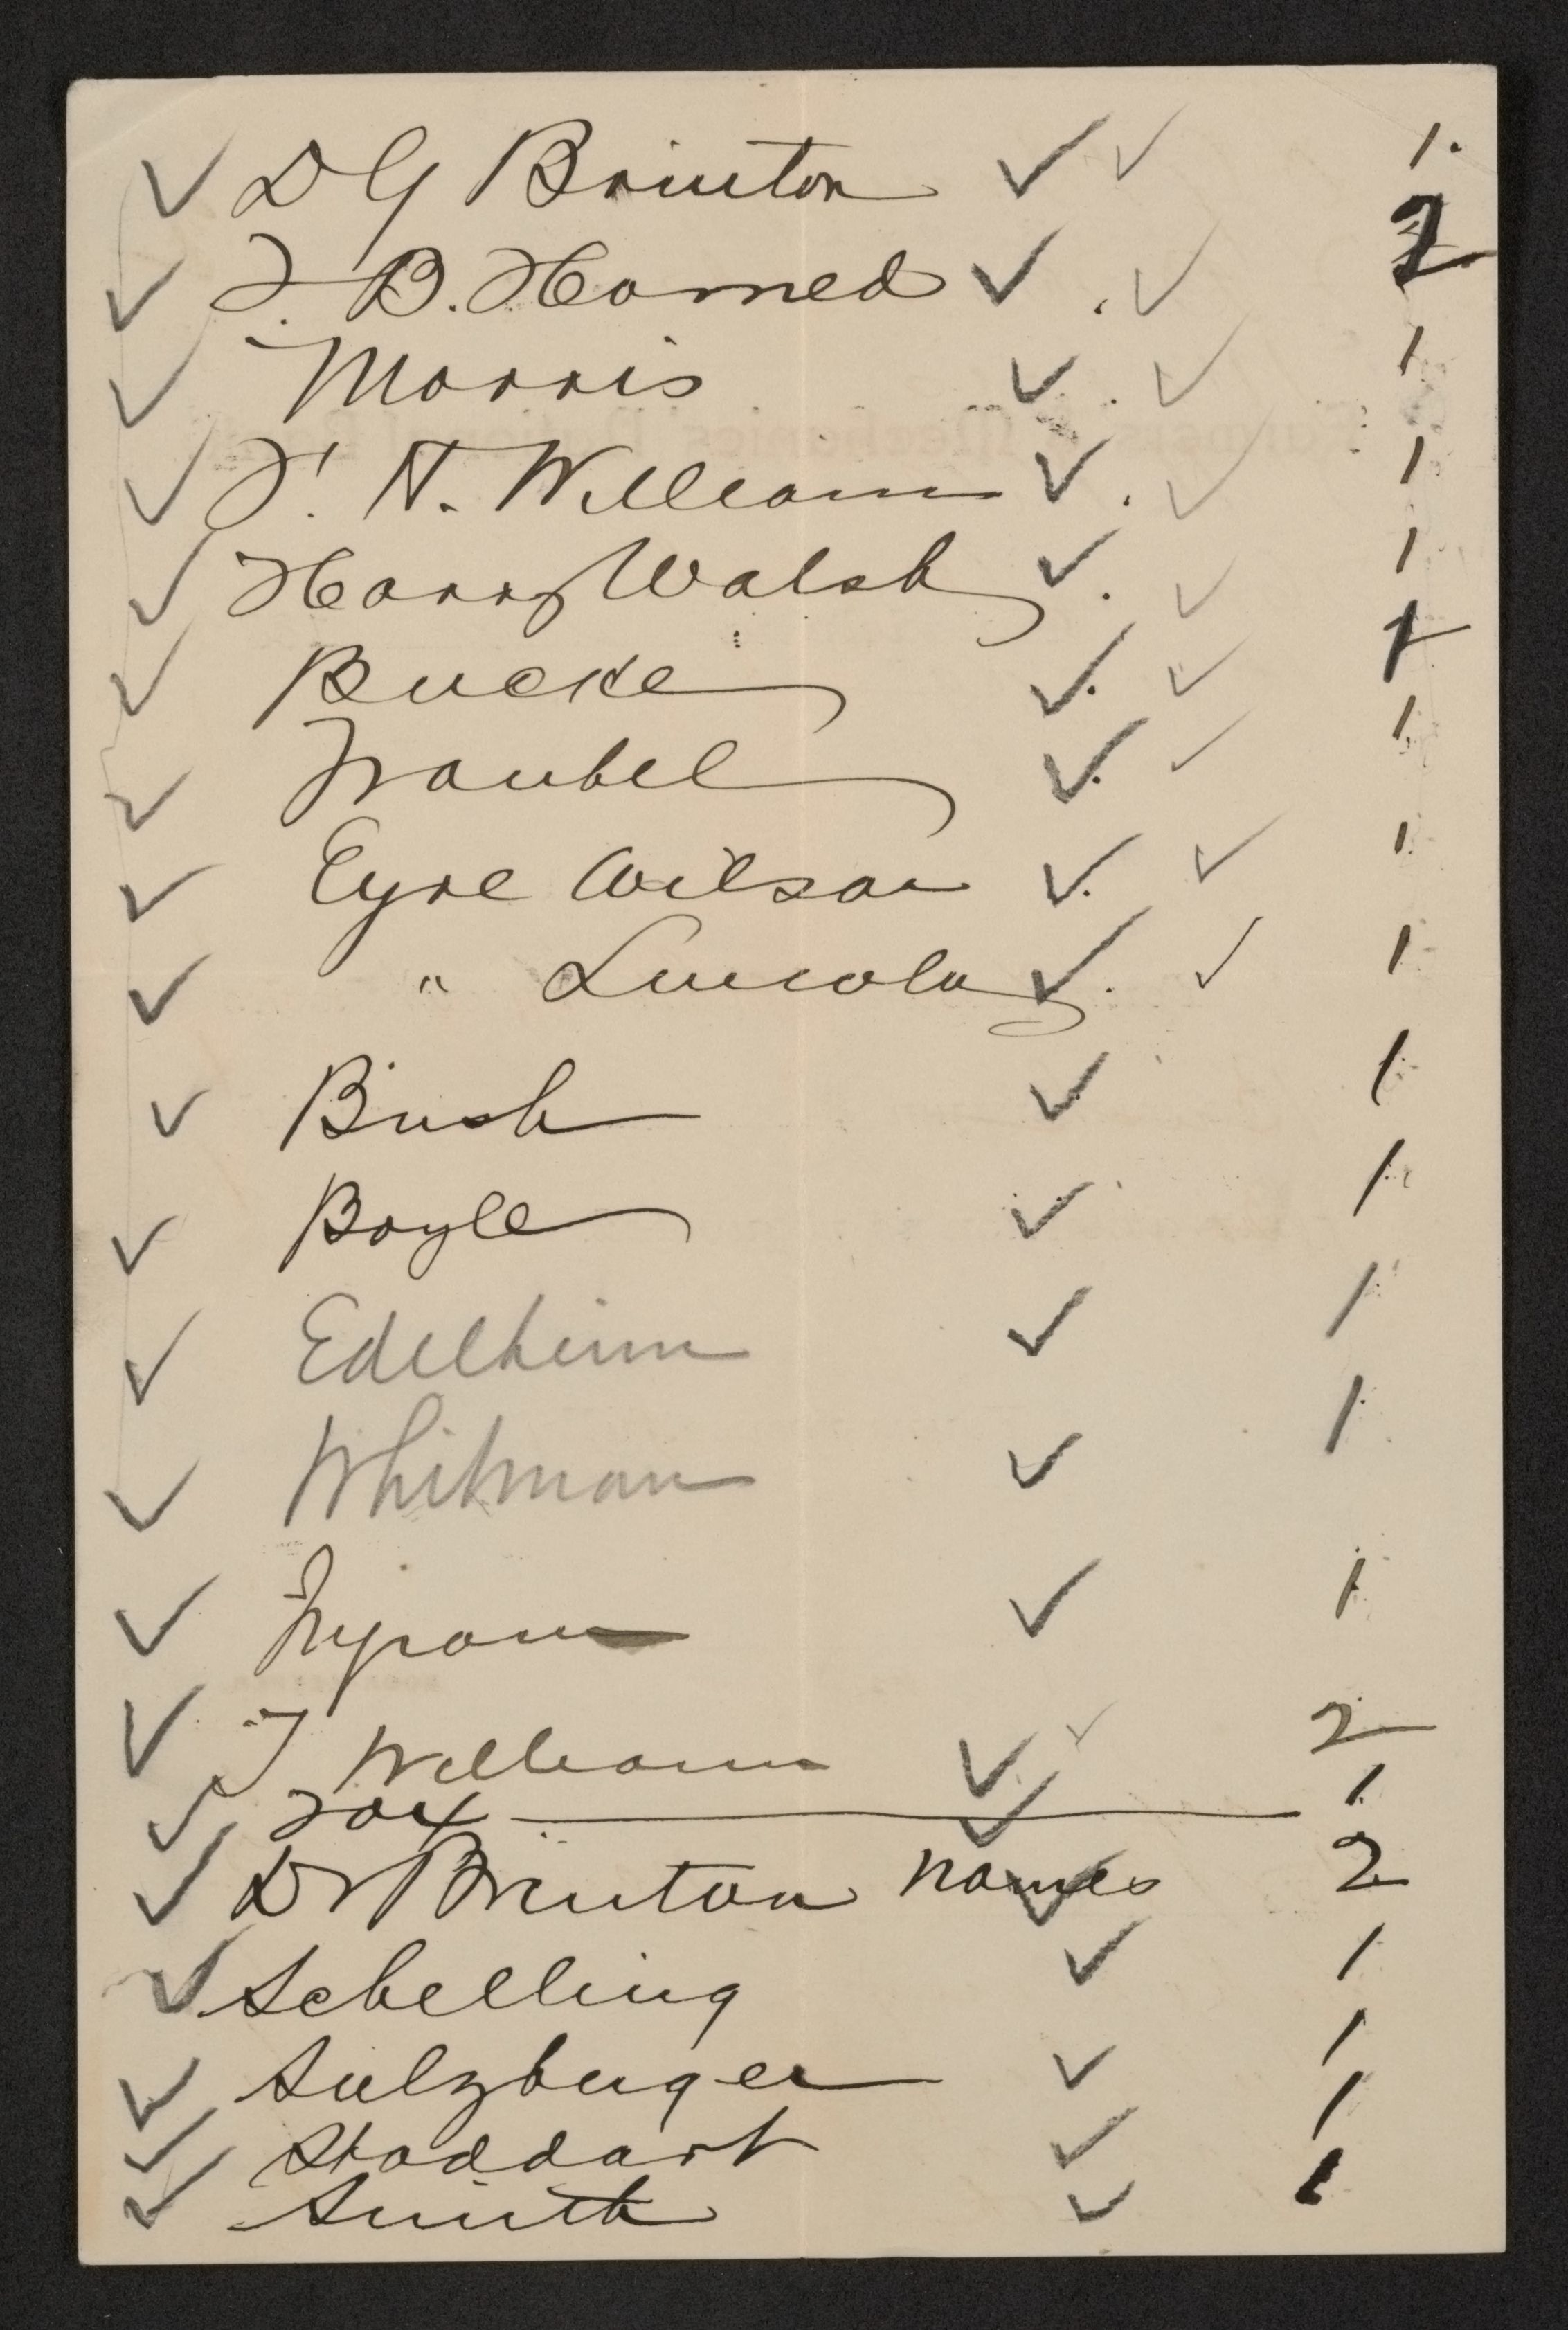 ✓ D G Brinton ✓ ✓ 1.
✓ T. B. Harned ✓ . ✓ 2
✓ Morris ✓ . ✓ 1
✓ T. N. Williams ✓ . ✓ 1
✓ Harry Walsh ✓ . ✓ 1
✓ Bucke ✓ . ✓ 1
✓ Traubel ✓ . ✓ 1
✓ Eyre Wilson ✓ . ✓ 1
✓ " Lincoln ✓ . ✓ 1
✓ Bush ✓ 1
✓ Boyle ✓ 1
✓ Edelheim ✓ 1
✓ Whitman ✓ 1
✓ ✓ 1
✓ T Williams ✓ ✓ 2
✓ Fox ✓ 1
✓ Dr Brinton names ✓ 2
✓ Schelling ✓ 1
✓ Sulzberger ✓ 1
✓ Stoddart ✓ 1
✓ Smith ✓ 1